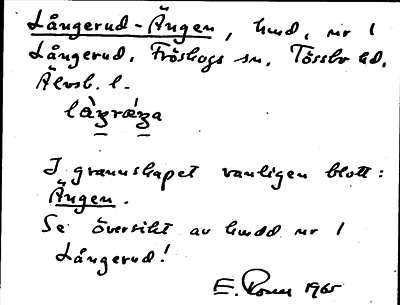 Långerud-Ängen, hmd, nr 1
Långerud, Fröskogs sn, Tössbo hd,
Älvsb. l.
I grannskapet vanligen blott:
Ängen.
Se översikt av hmdd nr 1
Långerud!
E. 1965